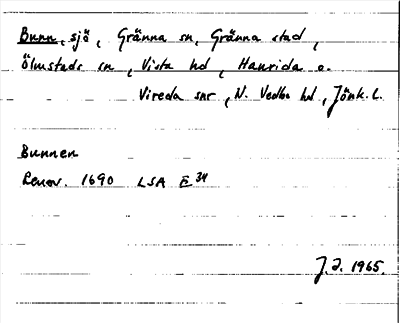 Bunn, sjö, Gränna sn, Gränna stad,
Ölmstads sn, Vista hd, Haurida o.
Vireda snr, N. Vedbo hd, Jönk. l.
Bunnen
Renov. 1690 LSA E 34
J.I. 1965.